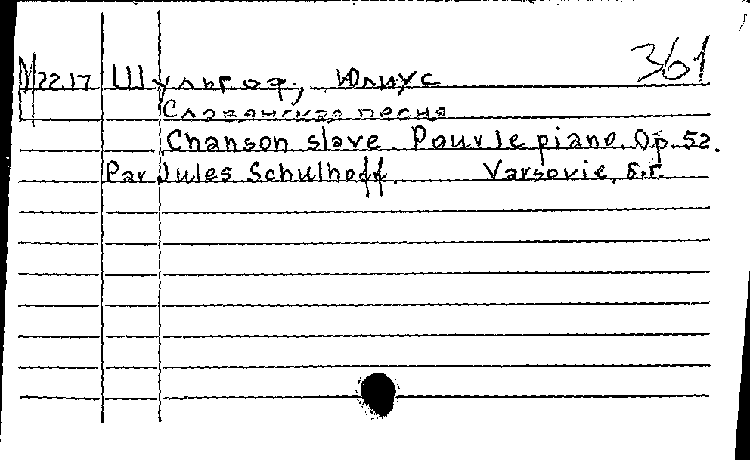 361
M22.17 Шульгоф, Юлиус
Славянская песня
Chanson slave. Pour le piano. Op. 52.
Par Jules Schulhoff. Varsovie, б.г.